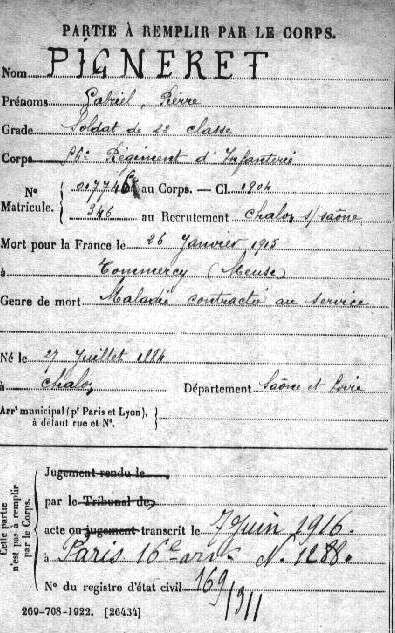 PARTIE À REMPLIR PAR LE CORPS.
Nom PIGNERET
Prénoms Gabriel, Pierre
Grade Soldat de 2e classe
Corps Régiment d'Infanterie
Nº Matricule. { au Corps. — Cl. 1904
346 au Recrutement Chalon s/saône
Mort pour la France le 26 Janvier 1915
à Commercy (Meuse)
Genre de mort Maladie contractée au service
Né le 27 Juillet 1884
à Chalon Département Saône et Loire
Arrt municipal (pr Paris et Lyon),
à défaut rue et Nº. }
Cette partie n'est pas à remplir par le Corps.
Jugement rendu le
par le Tribunal de
acte ou jugement transcrit le 7 Juin 1916.
à Paris 16e arrt. N. 1288.
Nº du registre d'état civil 169/1311
269-708-1922. [26434]